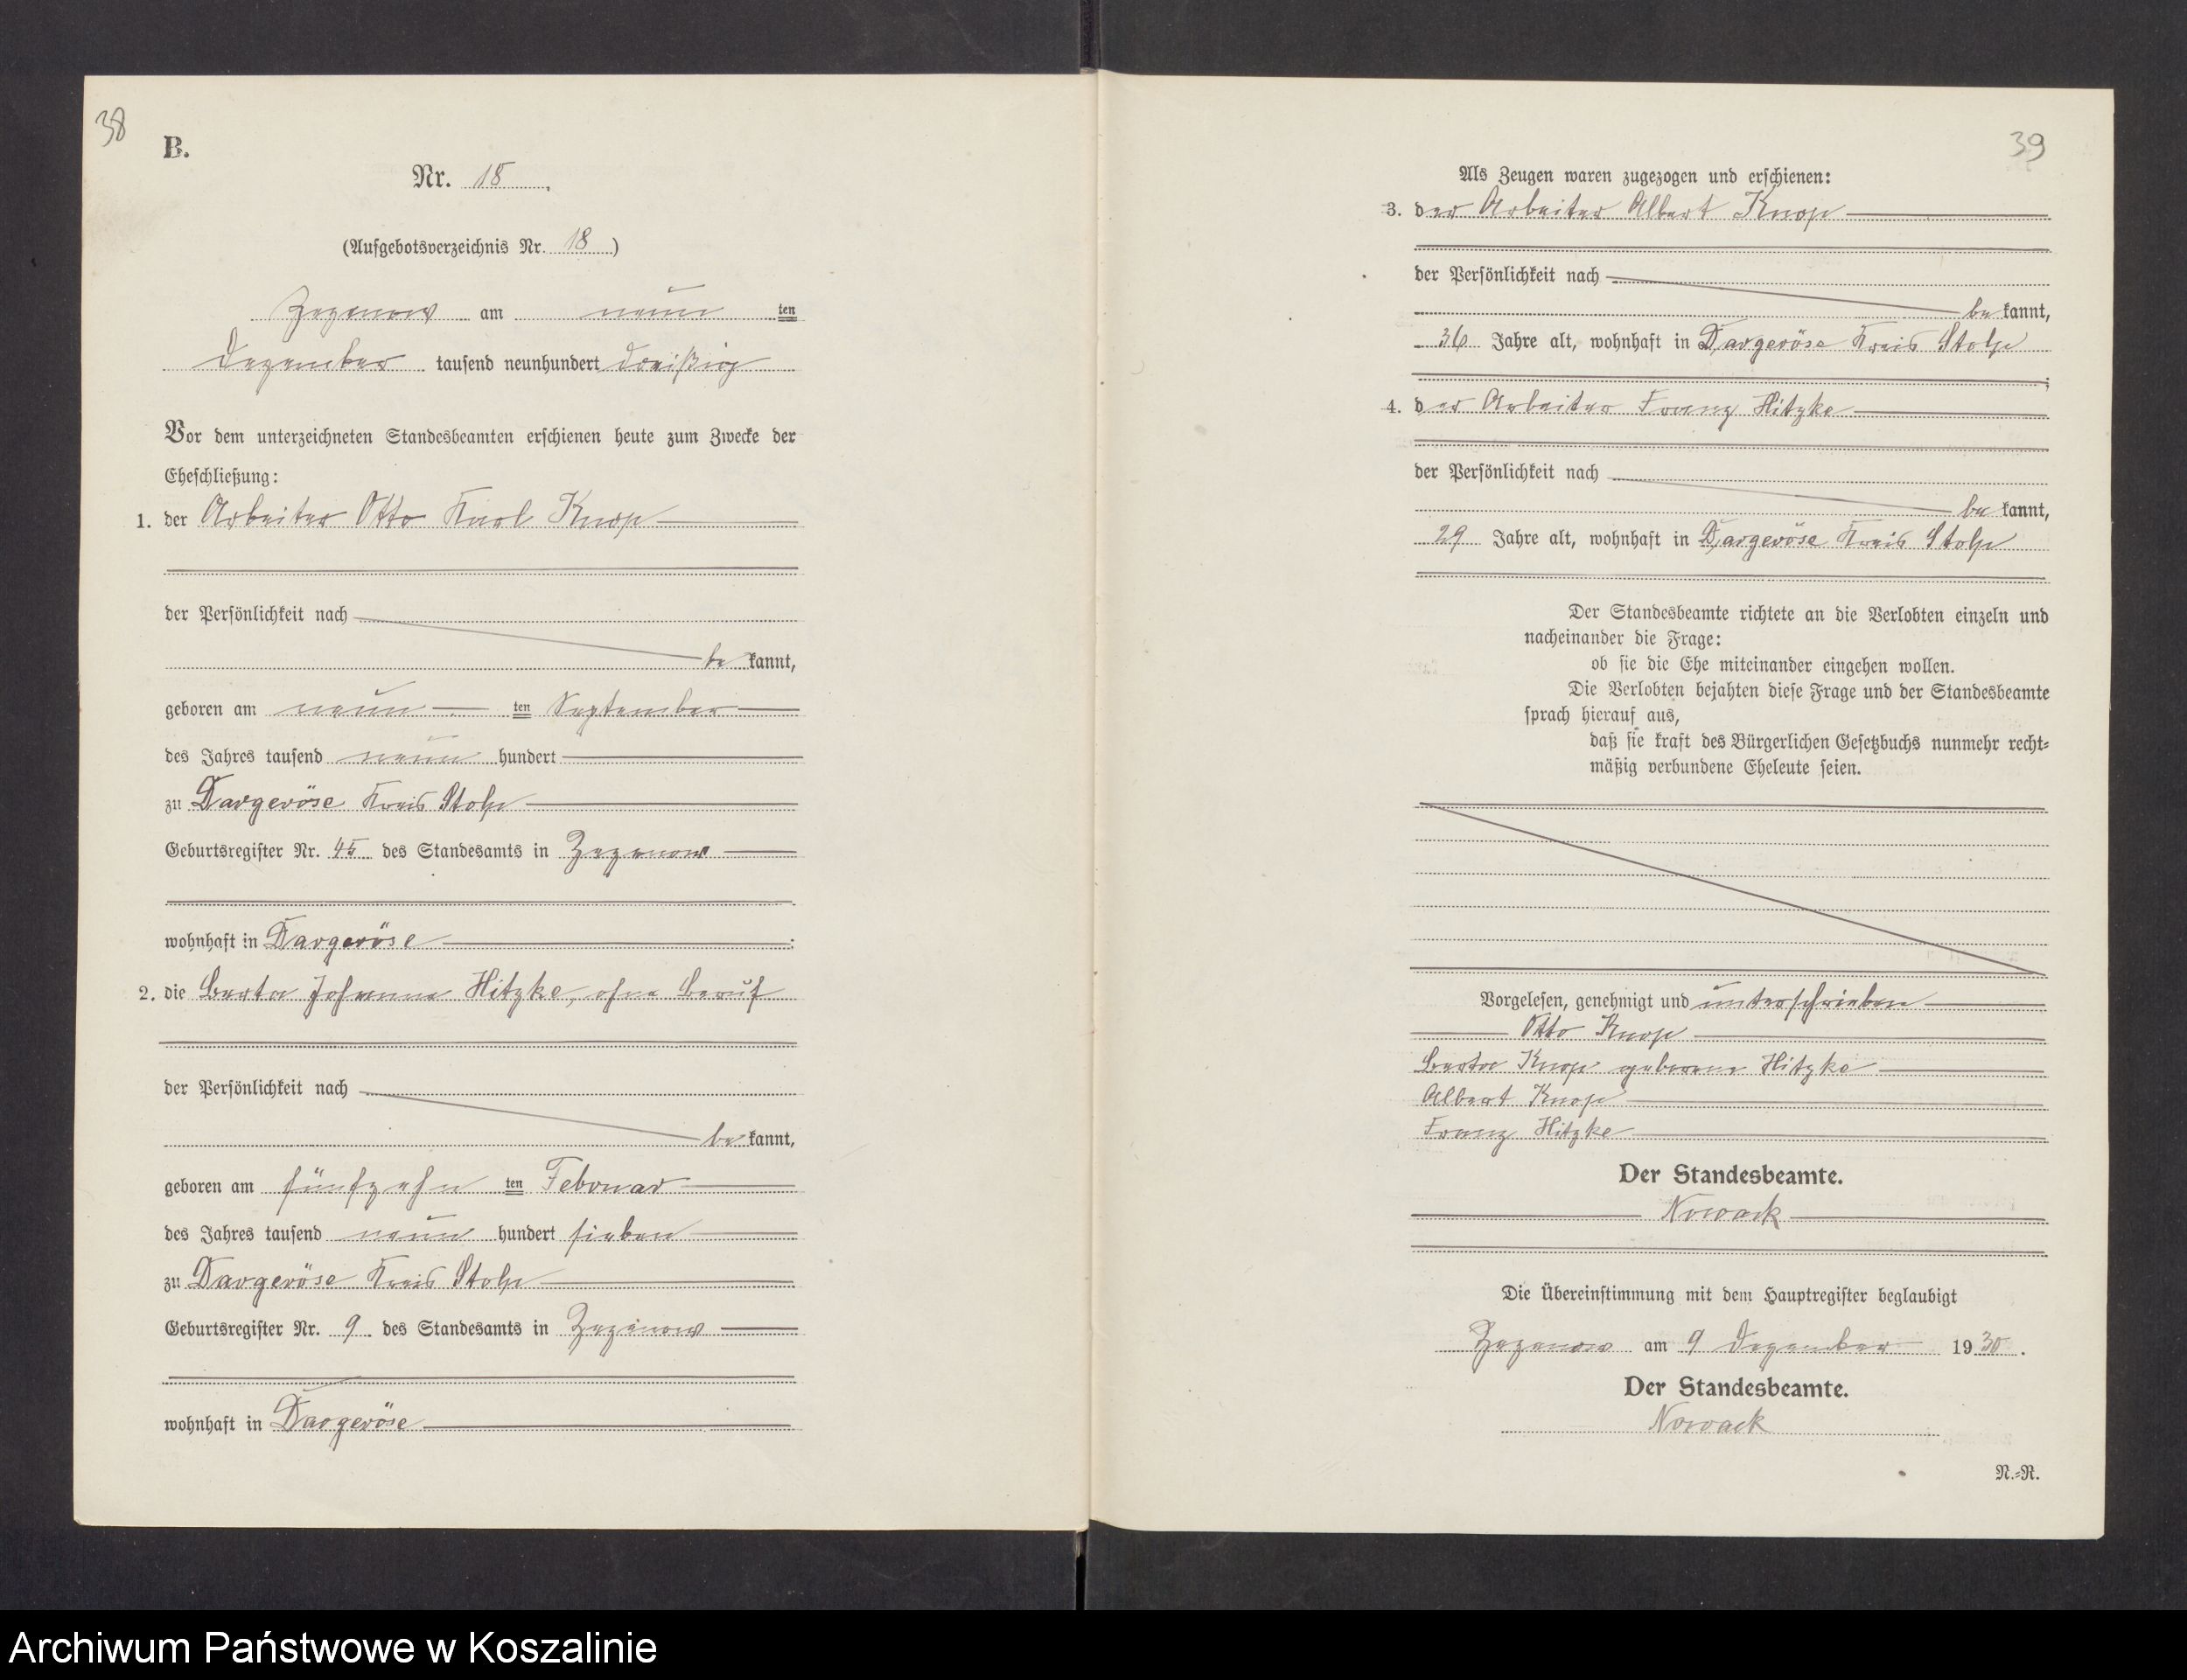 38
B.
Nr. 15.
(Aufgebotsverzeichnis Nr. 18)
Zezenow am neun ten
Dezember tausend neunhundert dreißig
Vor dem unterzeichneten Standesbeamten erschienen heute zum Zwecke der
Eheschließung:
1. der Arbeiter Otto Karl Knop
der Persönlichkeit nach
be kannt,
geboren am neun ten September
des Jahres tausend neun hundert
zu Dargeröse Kreis Stolp
Geburtsregister Nr. 45 des Standesamts in Zezenow
wohnhaft in Dargeröse;
2. die Berta Johanna Hitzke, ohne Beruf
der Persönlichkeit nach
be kannt,
geboren am fünfzehn ten Februar
des Jahres tausend neun hundert sieben
zu Dargeröse Kreis Stolp
Geburtsregister Nr. 9 des Standesamts in Zezenow
wohnhaft in Dargeröse
39
Als Zeugen waren zugezogen und erschienen:
3. der Arbeiter Albert Knop
der Persönlichkeit nach
be kannt,
36 Jahre alt, wohnhaft in Dargeröse Kreis Stolp
;
4. der Arbeiter Franz Hitzke
der Persönlichkeit nach
be kannt,
29 Jahre alt, wohnhaft in Dargeröse Kreis Stolp
Der Standesbeamte richtete an die Verlobten einzeln und
nacheinander die Frage:
ob sie die Ehe miteinander eingehen wollen.
Die Verlobten bejahten diese Frage und der Standesbeamte
sprach hierauf aus,
daß sie kraft des Bürgerlichen Gesetzbuchs nunmehr recht=
mäßig verbundene Eheleute seien.
Vorgelesen, genehmigt und unterschrieben
Otto Knop
Berta Knop geborene Hitzke
Albert Knop
Franz Hitzke
Der Standesbeamte.
Nowack
Die Übereinstimmung mit dem Hauptregister beglaubigt
Zezenow am 9 Dezember 1930.
Der Standesbeamte.
Nowack
N.=R.
Archiwum Państwowe w Koszalinie